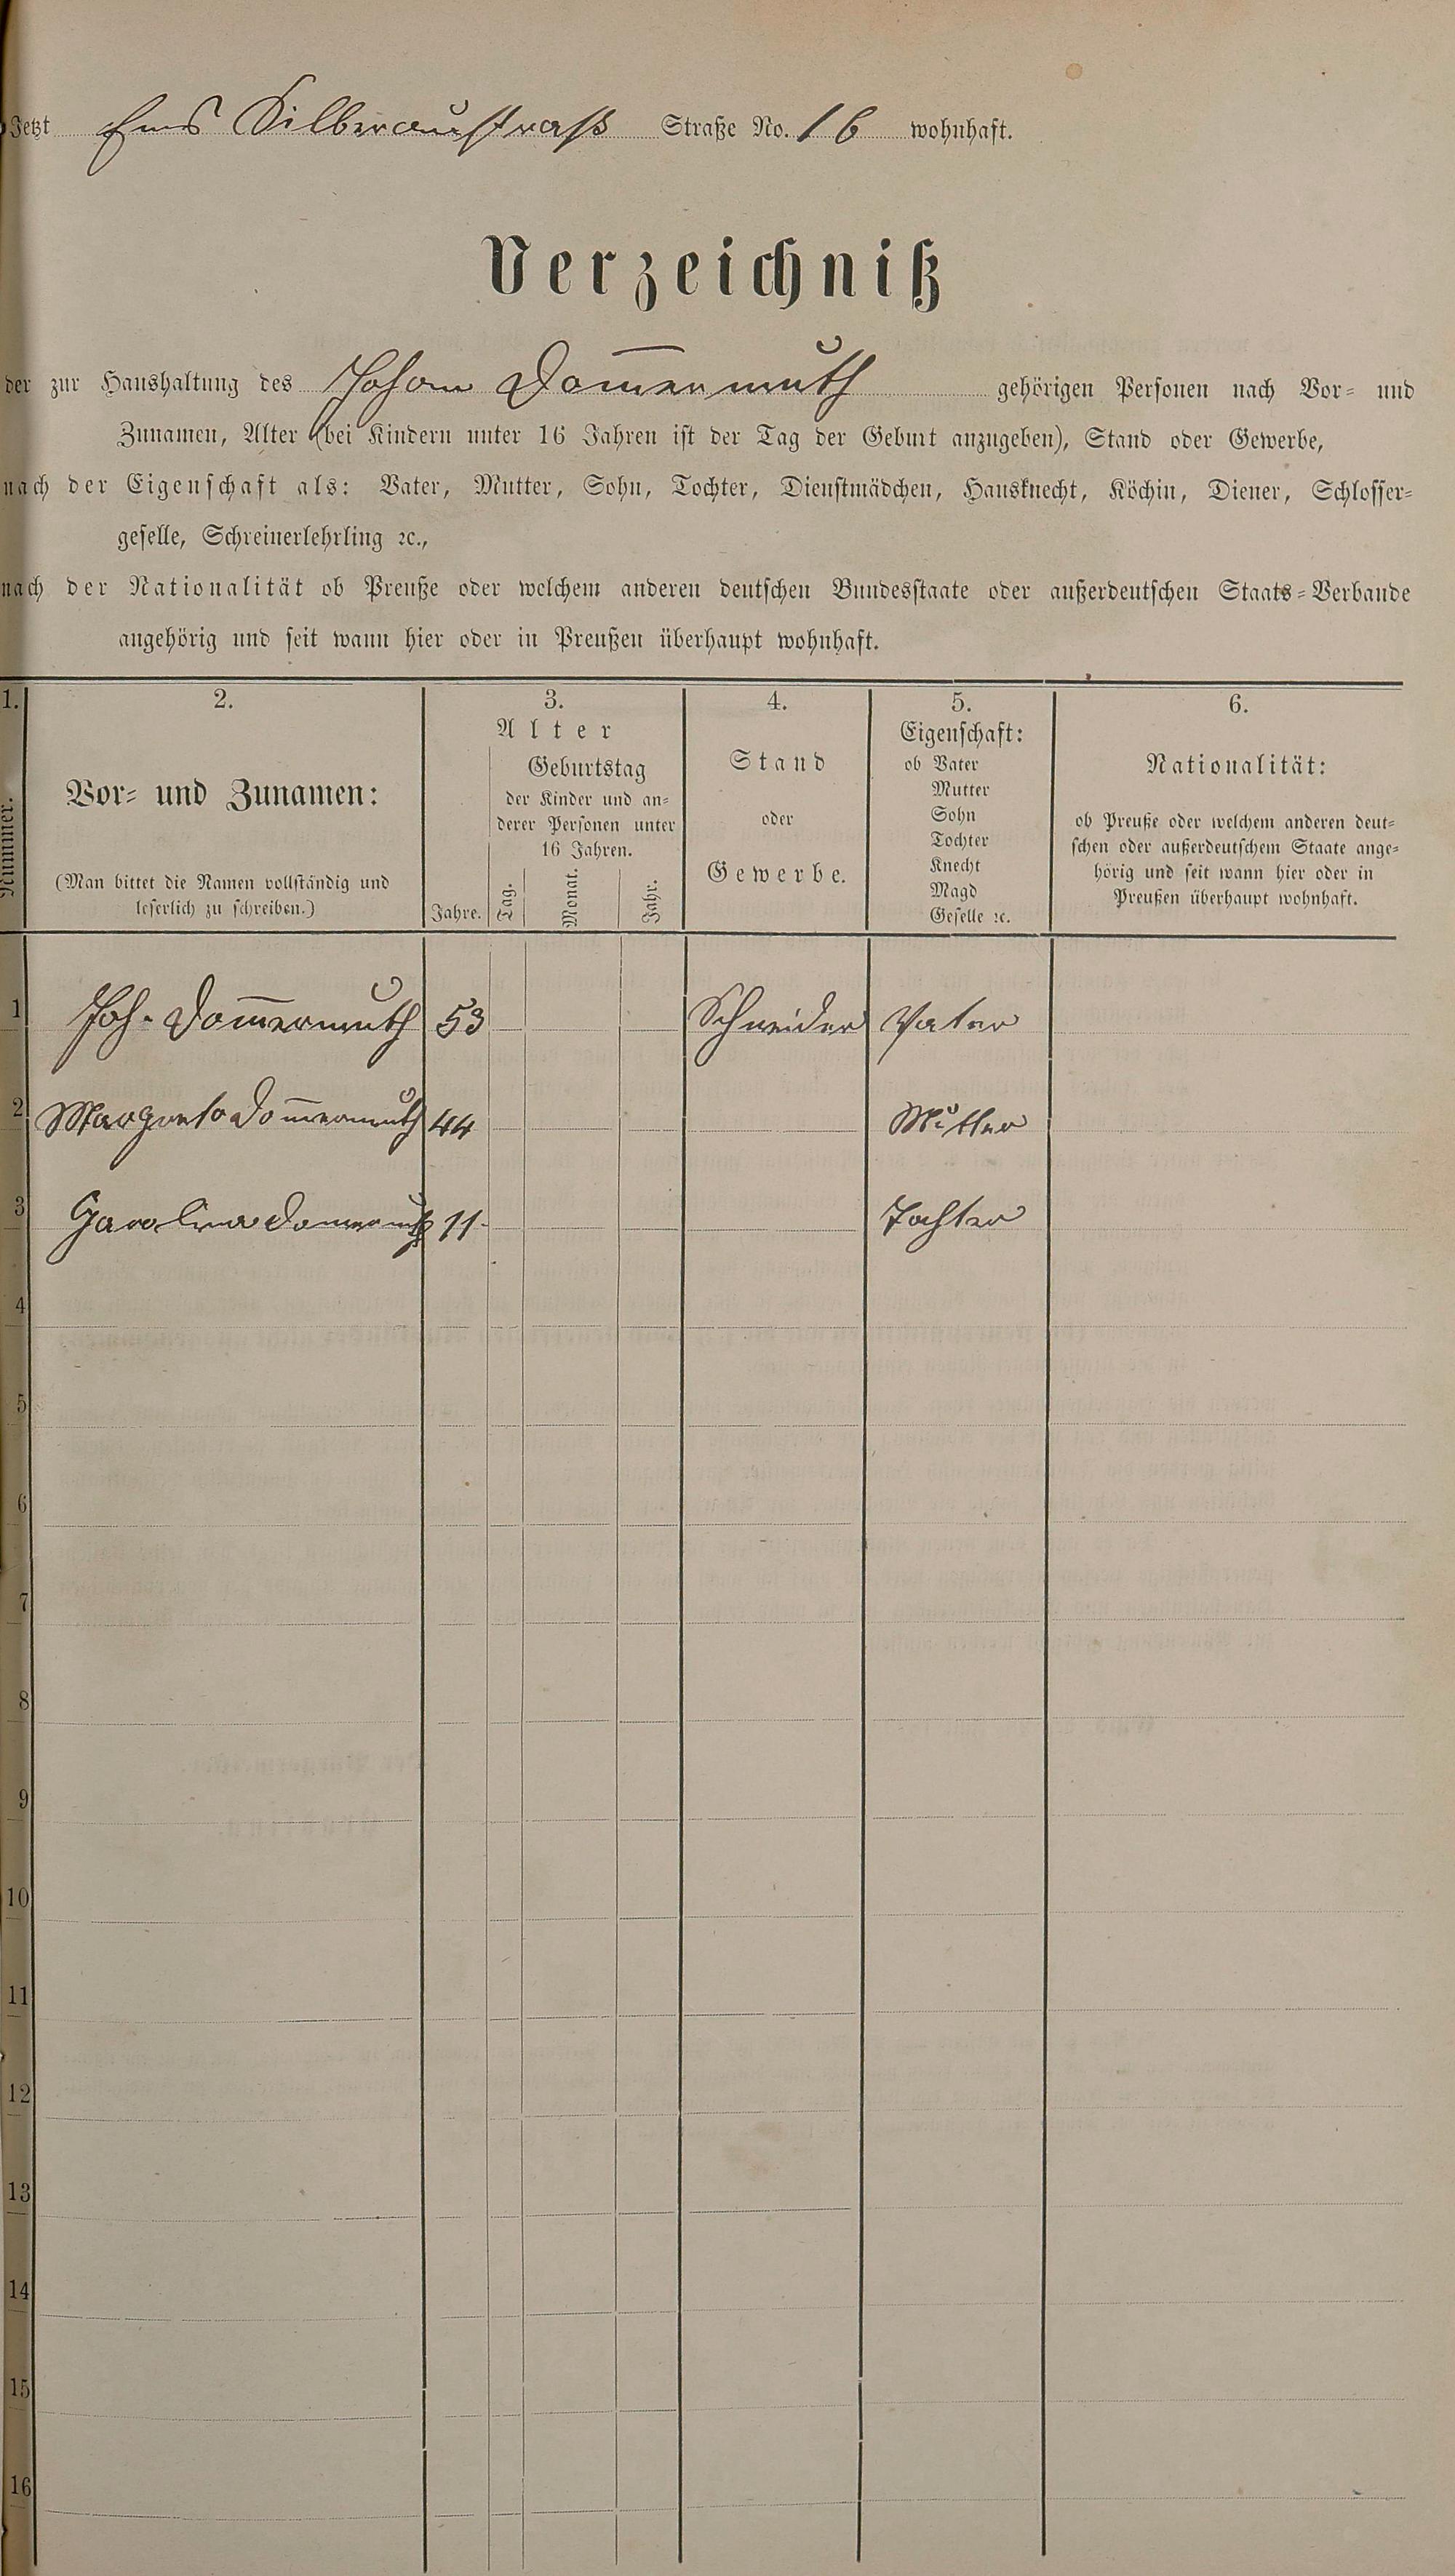 Jetzt Ems Silberaustraß Straße No. 16 wohnhaft.
Verzeichniß
der zur Haushaltung des Johan Dom̄ermuth gehörigen Personen nach Vor- und
Zunamen, Alter (bei Kindern unter 16 Jahren ist der Tag der Geburt anzugeben), Stand oder Gewerbe,
nach der Eigenschaft als: Vater, Mutter, Sohn, Tochter, Dienstmädchen, Hausknecht, Köchin, Diener, Schlosser-
geselle, Schreinerlehrling ꝛc.,
nach der Nationalität ob Preuße oder welchem anderen deutschen Bundesstaate oder außerdeutschen Staats-Verbande
angehörig und seit wann hier oder in Preußen überhaupt wohnhaft.
1.
Nummer.
2.
Vor- und Zunamen:
(Man bittet die Namen vollständig und
leserlich zu schreiben.)
3.
Alter
Geburtstag
der Kinder und an-
derer Personen unter
16 Jahren.
Jahre. Tag. Monat. Jahr.
4.
Stand
oder
Gewerbe.
5.
Eigenschaft:
ob Vater
Mutter
Sohn
Tochter
Knecht
Magd
Geselle ꝛc.
6.
Nationalität:
ob Preuße oder welchem anderen deut-
schen oder außerdeutschem Staate ange-
hörig und seit wann hier oder in
Preußen überhaupt wohnhaft.
1 Joh. Dom̄ermuth 53 Schneider Vater
2 Margreta Dom̄ermuth 44 Mutter
3 Garolina Domermuth 11 Tochter
4
5
6
7
8
9
10
11
12
13
14
15
16